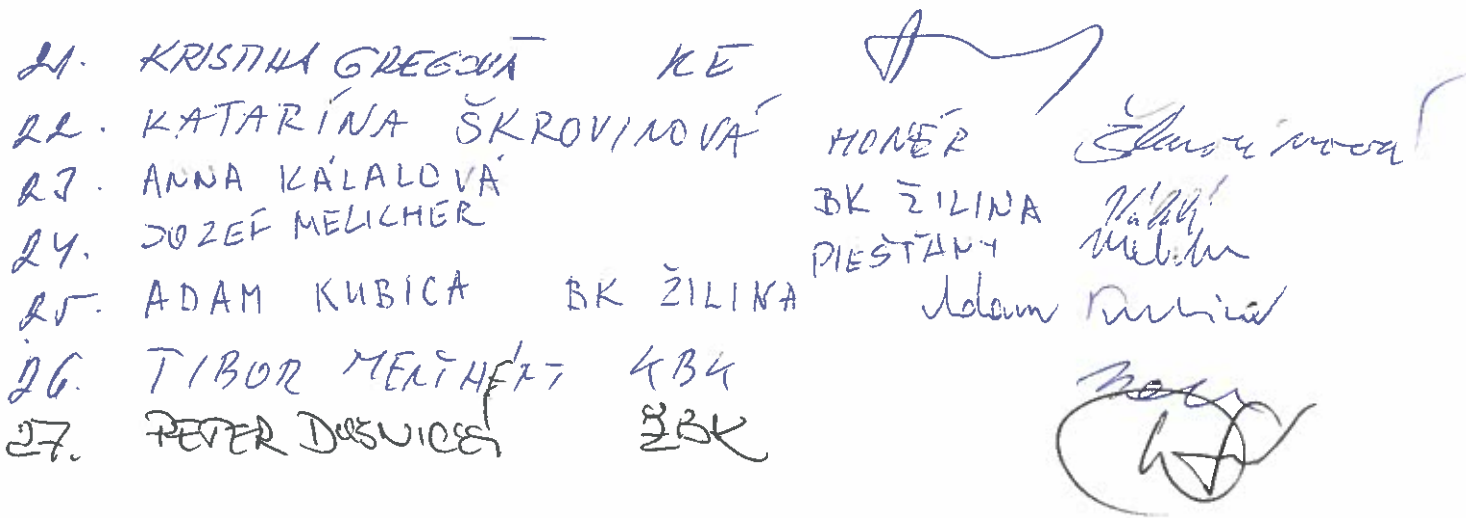 21. KRISTINA GREGOVÁ KE
22. KATARÍNA ŠKROVINOVÁ HONÉR Škrovinová
23. ANNA KÁLALOVÁ BK ŽILINA
24. JOZEF MELICHER PIEŠŤANY
25. ADAM KUBICA BK ŽILINA Adam Kubica
26. TIBOR KBK
27. PETER ŽBK